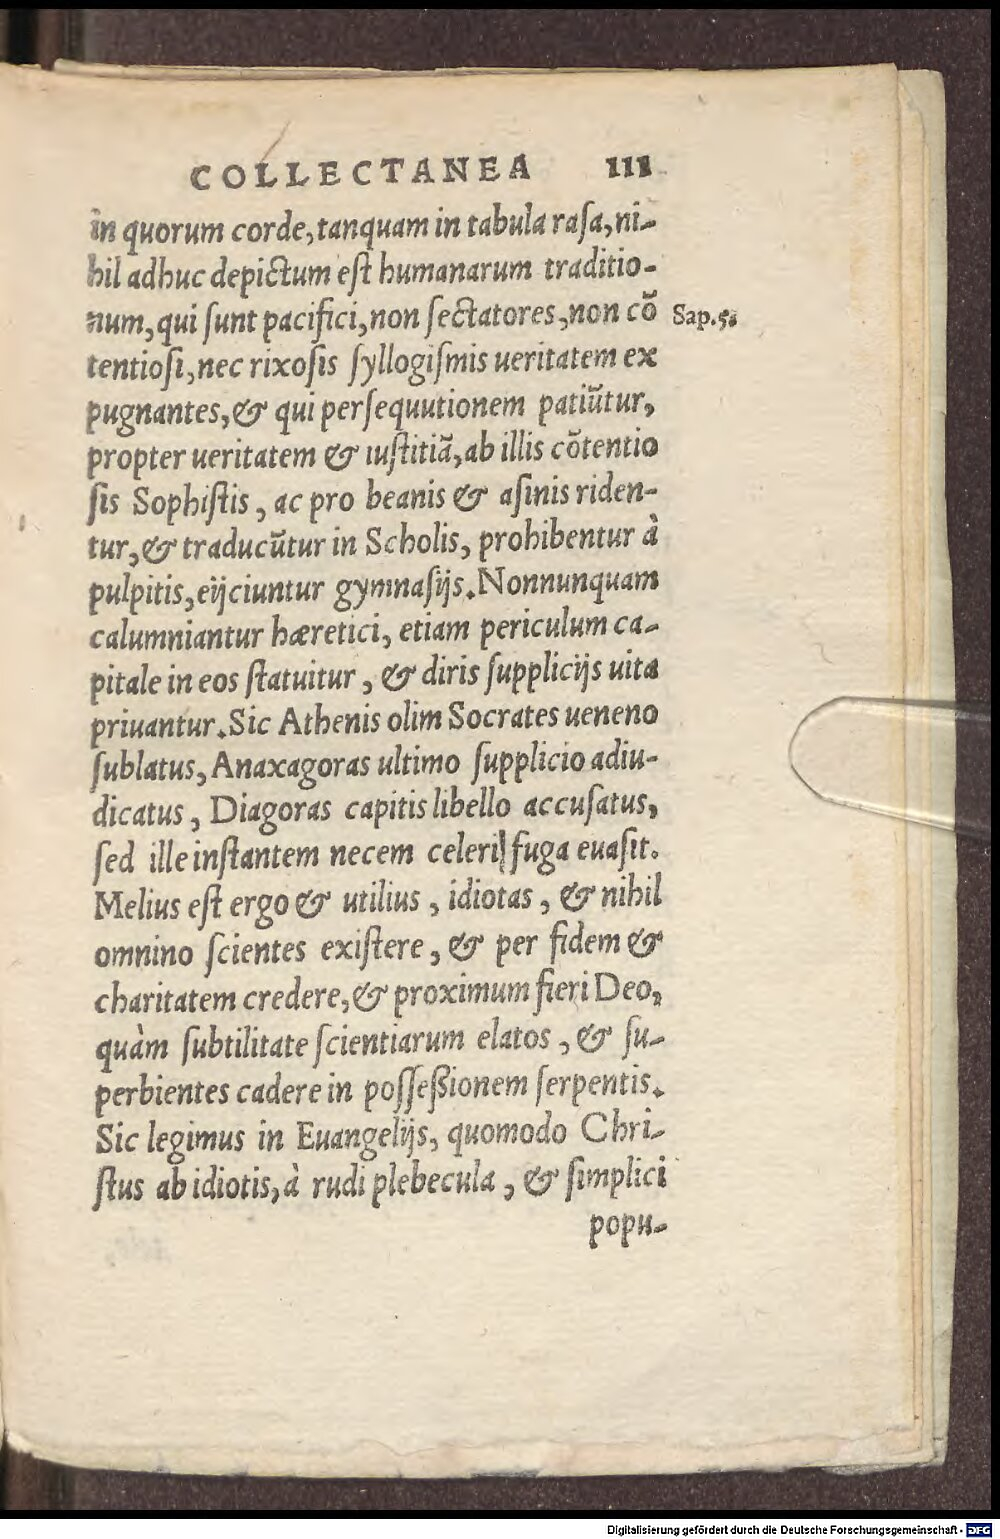 COLLECTANEA 111
in quorum corde, tanquam in tabula rasa, ni-
hil adhuc depictum est humanarum traditio-
num, qui sunt pacifici, non sectatores, non cõ Sap. 5.
tentiosi, nec rixosis syllogismis ueritatem ex
pugnantes, & qui persequutionem patiũtur,
propter ueritatem & iustitiã, ab illis cõtentio
sis Sophistis, ac pro beanis & asinis riden-
tur, & traducũtur in Scholis, prohibentur à
pulpitis, eijciuntur gymnasijs. Nonnunquam
calumniantur hæretici, etiam periculum ca-
pitale in eos statuitur, & diris supplicijs uita
priuantur. Sic Athenis olim Socrates ueneno
sublatus, Anaxagoras ultimo supplicio adiu-
dicatus, Diagoras capitis libello accusatus,
sed ille instantem necem celeri fuga euasit.
Melius est ergo & utilius, idiotas, & nihil
omnino scientes existere, & per fidem &
charitatem credere, & proximum fieri Deo,
quàm subtilitate scientiarum elatos, & su-
perbientes cadere in posseßionem serpentis.
Sic legimus in Euangelijs, quomodo Chri-
stus ab idiotis, à rudi plebecula, & simplici
popu-
Digitalisierung gefördert durch die Deutsche Forschungsgemeinschaft - DFG